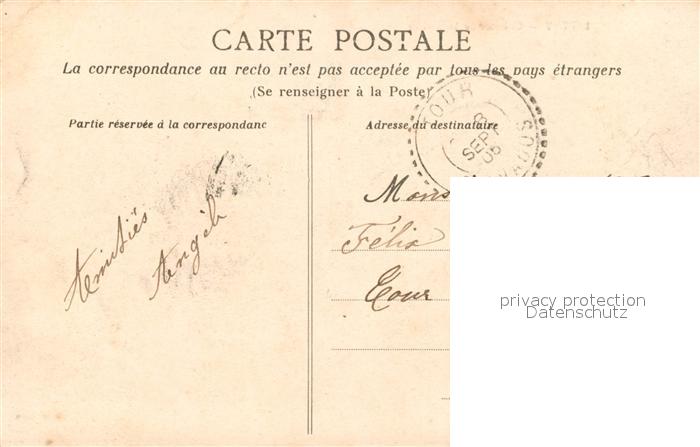 CARTE POSTALE
La correspondance au recto n'est pas acceptée par tous les pays étrangers
(Se renseigner à la Poste)
Partie réservée à la correspondanc
Adresse du destinataire
TOUR
SEPT
05
Amitiés
Angèle
Mons
Félix
Tour
privacy protection
Datenschutz